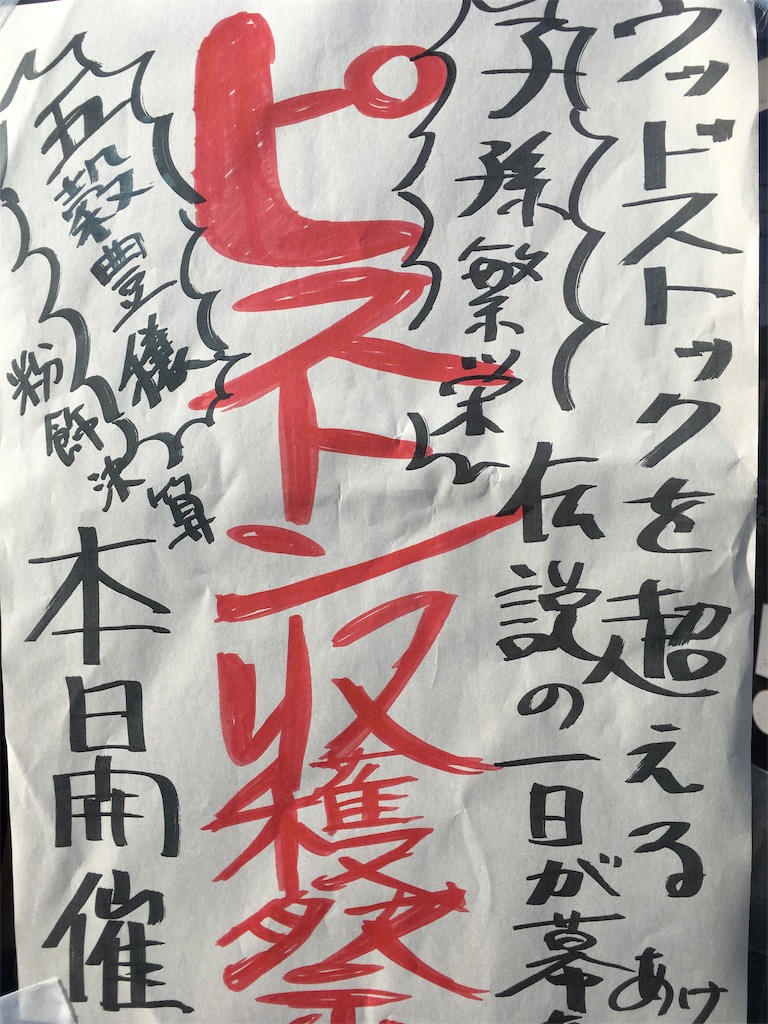 ウッドストックを超える
伝説の一日が幕
あけ
子孫繁栄
ピストン収穫祭
五穀豊穣
粉飾決算
本日開催